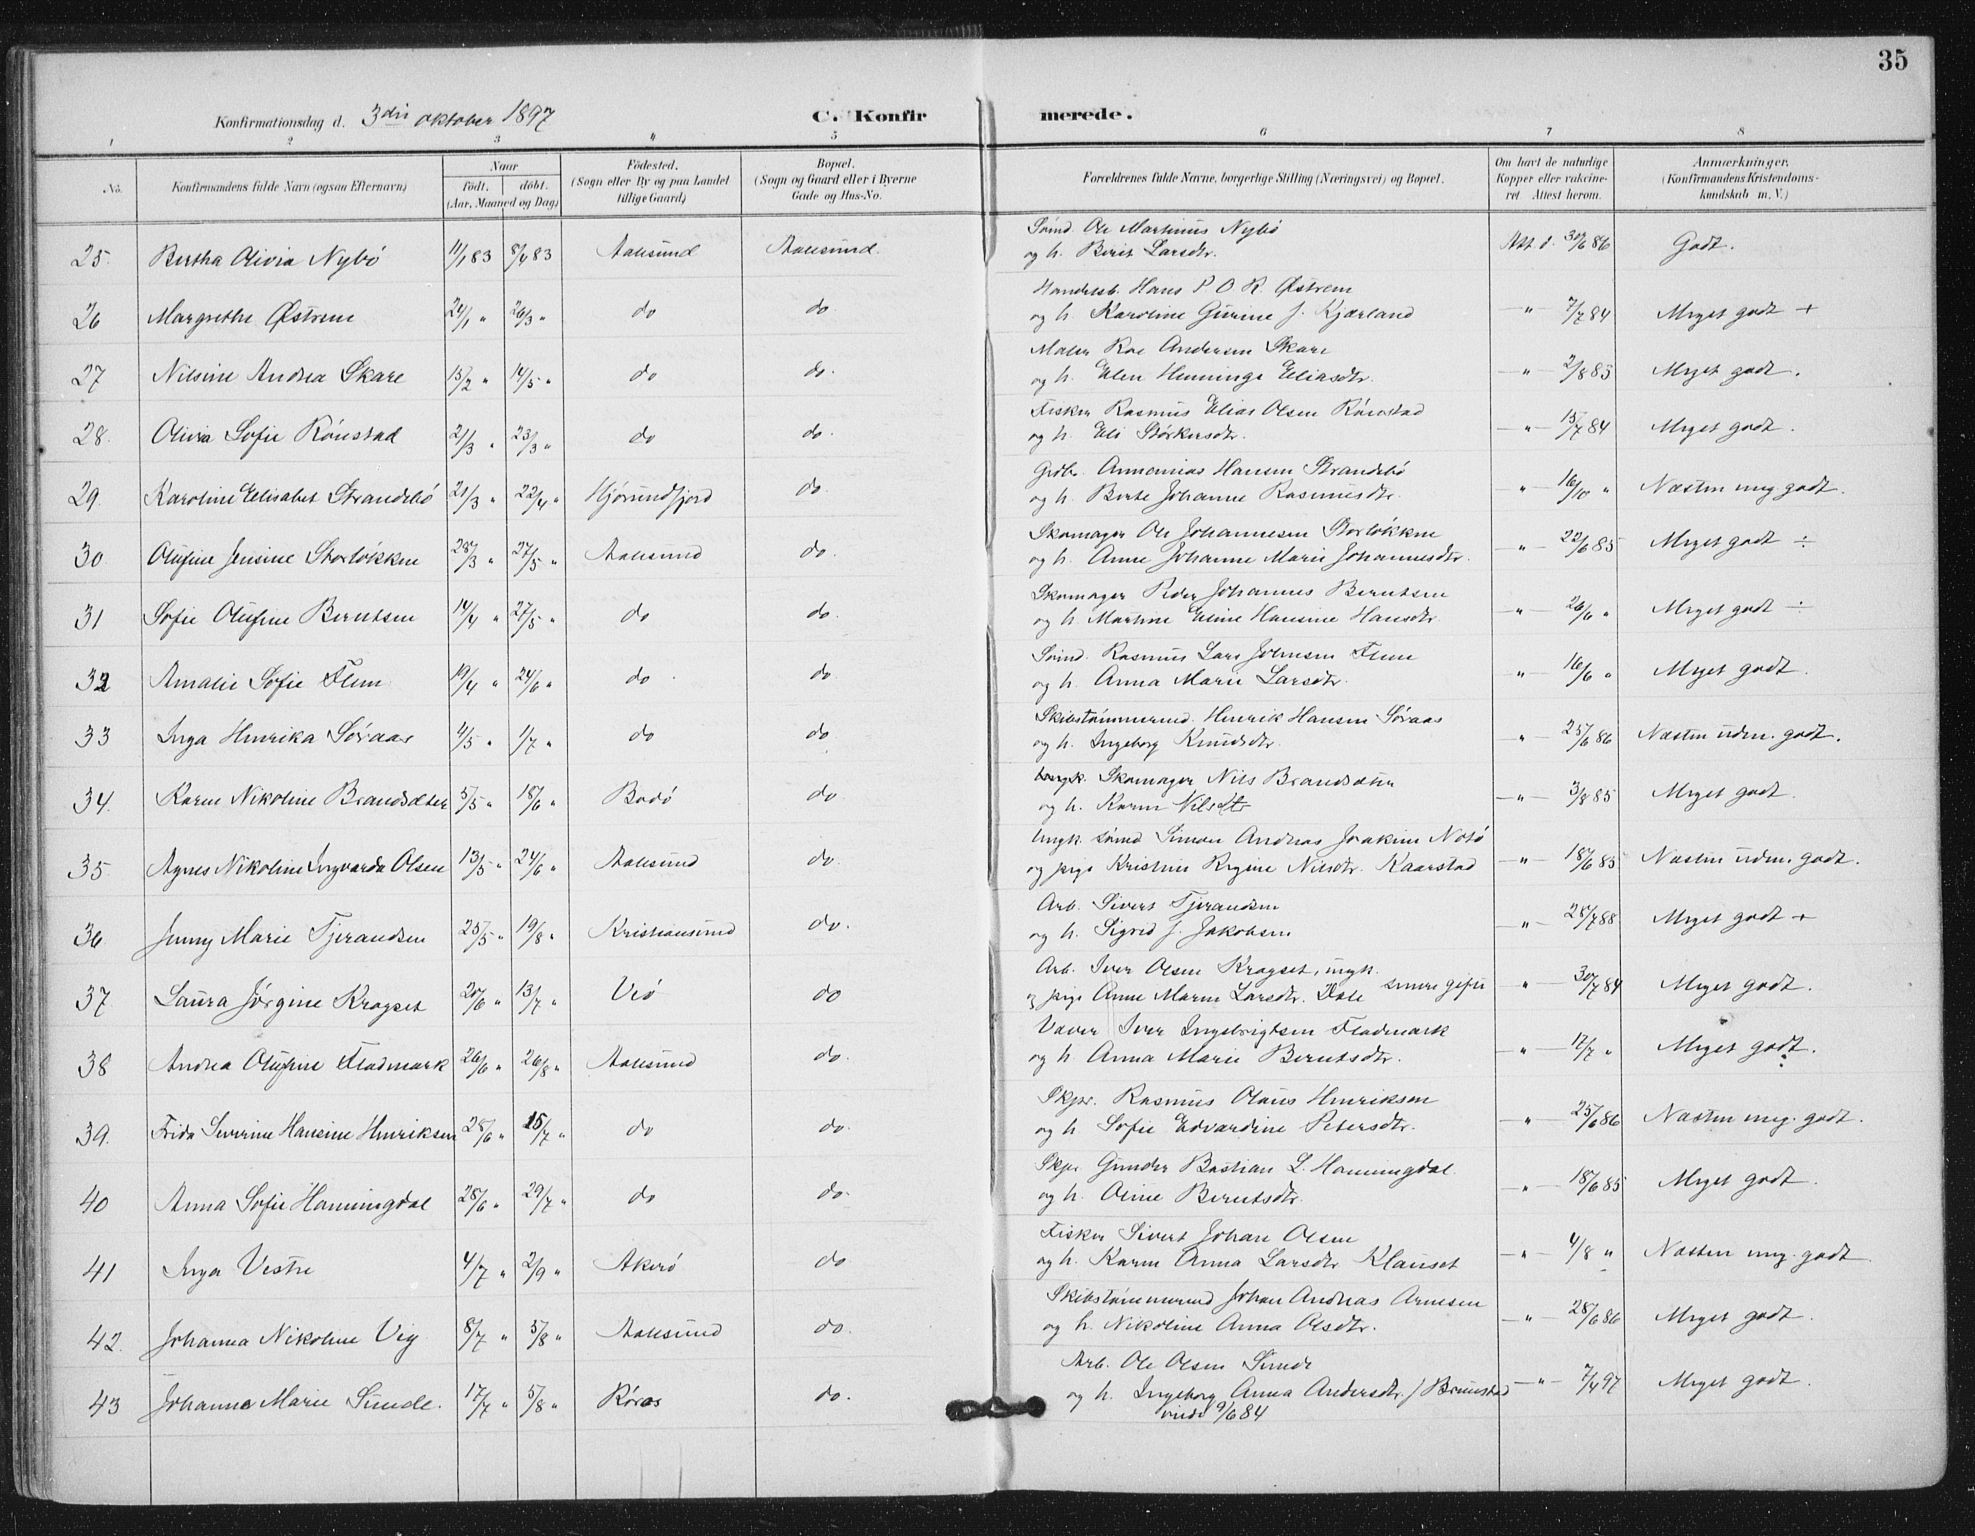 35
Konfirmationsdag d. 3die oktober 1897 C. Konfirmerede.
1 2 3 4 5 6 7 8
No. Konfirmandens fulde Navn (ogsaa Efternavn) Naar födt. döbt. (Aar, Maaned og Dag) Födested. (Sogn eller By og paa Landet tillige Gaard) Bopæl. (Sogn og Gaard eller i Byerne Gade og Hus-No. Forældrenes fulde Navne, borgerlige Stilling (Næringsvei) og Bopæl. Om havt de naturlige Kopper eller vakcineret. Attest herom. Anmærkninger. (Konfirmandens Kristendomskundskab m. V.)
25. Bertha Olivia Nybö 11/1 83 8/4 83 Aalesund Aalesund. Sömd. Ole Martinus Nybö
og h. Berit Larsdtr. Att d. 30/6 86 Godt.
26 Margrethe Østrem 24/1 " 26/3 " do do Handelsb. Hans P. O. R. Østrem
og h. Karoline Gurine f. Kjærland " 7/7 84 Meget godt +
27 Nilsine Andrea Skare 15/2 " 14/5 " do do. Maler Roe Andersen Skare
og h. Elen Henninge Eliasdtr. " 2/8 83 Meget godt.
28. Olivia Sofie Rönstad 2/3 " 23/3 " do do. Fisker Rasmus Elias Olsen Rönstad
og h. Eli Størkersdtr. " 15/7 84 Meget godt.
29. Karoline Elisabet Strandebö 21/3 " 22/4 " Hjörundfjord do. Grdbr. Annanias Hansen Strandebö
og h. Berte Johanne Rasmusdtr. " 16/10 " Næsten meg godt.
30 Olufine Jensine Storløkken 28/3 " 27/5 " Aalesund do. Skomager Ole Johannesen Storløkken
og h. Anne Johanne Marie Johannesdtr. " 22/6 85 Meget godt ÷
31 Sofie Olufine Berntsen 14/4 " 27/5 " do do. Skomager Peder Johannes Berntsen
og h. Martine Eline Hansine Hansdtr " 26/6 " Meget godt ÷
32 Amalie Sofie Flem 19/4 " 24/6 " do do Sömd. Rasmus Lars Johnsen Flem
og h. Anna Marie Larsdtr. " 16/6 " Meget godt.
33 Inga Henrika Søraas 4/5 " 1/7 " do do Skibstömmermd. Henrik Hansen Søraas
og h. Ingeborg Knudsdtr. " 25/6 86 Næsten udm. godt.
34. Karen Nikoline Brandsæter 5/5 " 18/6 " Bodö do Skomager Nils Brandsæter
og h. Karen Nilsdtr " 3/8 85 Meget godt.
35 Agnes Nikoline Ingvarda Olsen 13/5 " 24/6 " Aalesund do. Ungk. sömd Simon Andreas Joakim Notö
og pige Kristine Regine Nilsdtr. Kaarstad " 18/6 85 Næsten udm. godt.
36 Jenny Marie Tjerandsen 25/5 " 19/8 " Kristiansund do. Arb. Sivert Tjerandsen
og h. Sigrid f. Jakobsen " 28/7 88 Meget godt +
37 Laura Jørgine Kragset 20/6 " 13/7 " Veö do Arb. Iver Olsen Kragset, ungk.
og pige Anne Marie Larsdtr. Dale senere gifte " 30/7 84 Meget godt.
38 Andrea Olufine Fladmark 26/6 " 26/8 " Aalesund do. Væver Iver Ingebrigtsen Fladmark
og h. Anna Marie Berntsdtr. " 17/7 " Meget godt.
39. Frida Severine Hansine Henriksen 28/6 " 15/7 " do do. Skpr. Rasmus Olaus Henriksen
og h. Sofie Edvardine Petersdtr. " 25/6 86 Næsten meg. godt.
40 Anna Sofie Hanningdal 28/6 " 29/7 " do do. Skpr Gunder Bastian L. Hanningdal
og h. Oline Berntsdtr. " 18/6 85 Meget godt
41 Inga Vestre 4/7 " 2/9 " Akerö do Fisker Sivert Johan Olsen
og h. Karen Anna Larsdtr Klauset " 4/8 " Næsten meg. godt
42. Johanna Nikoline Vig 8/7 " 5/8 " Aalesund do. Skibstömmermd Johan Andreas Arnesen
og h. Nikoline Anna Olsdtr. " 28/6 86 Meget godt.
43 Johanne Marie Sunde. 17/7 " 5/8 " Röros do. Arb. Ole Olsen Sunde
og h. Ingeborg Anna Andersdtr. f Brunstad " 7/4 97 Meget godt.
9/6 84